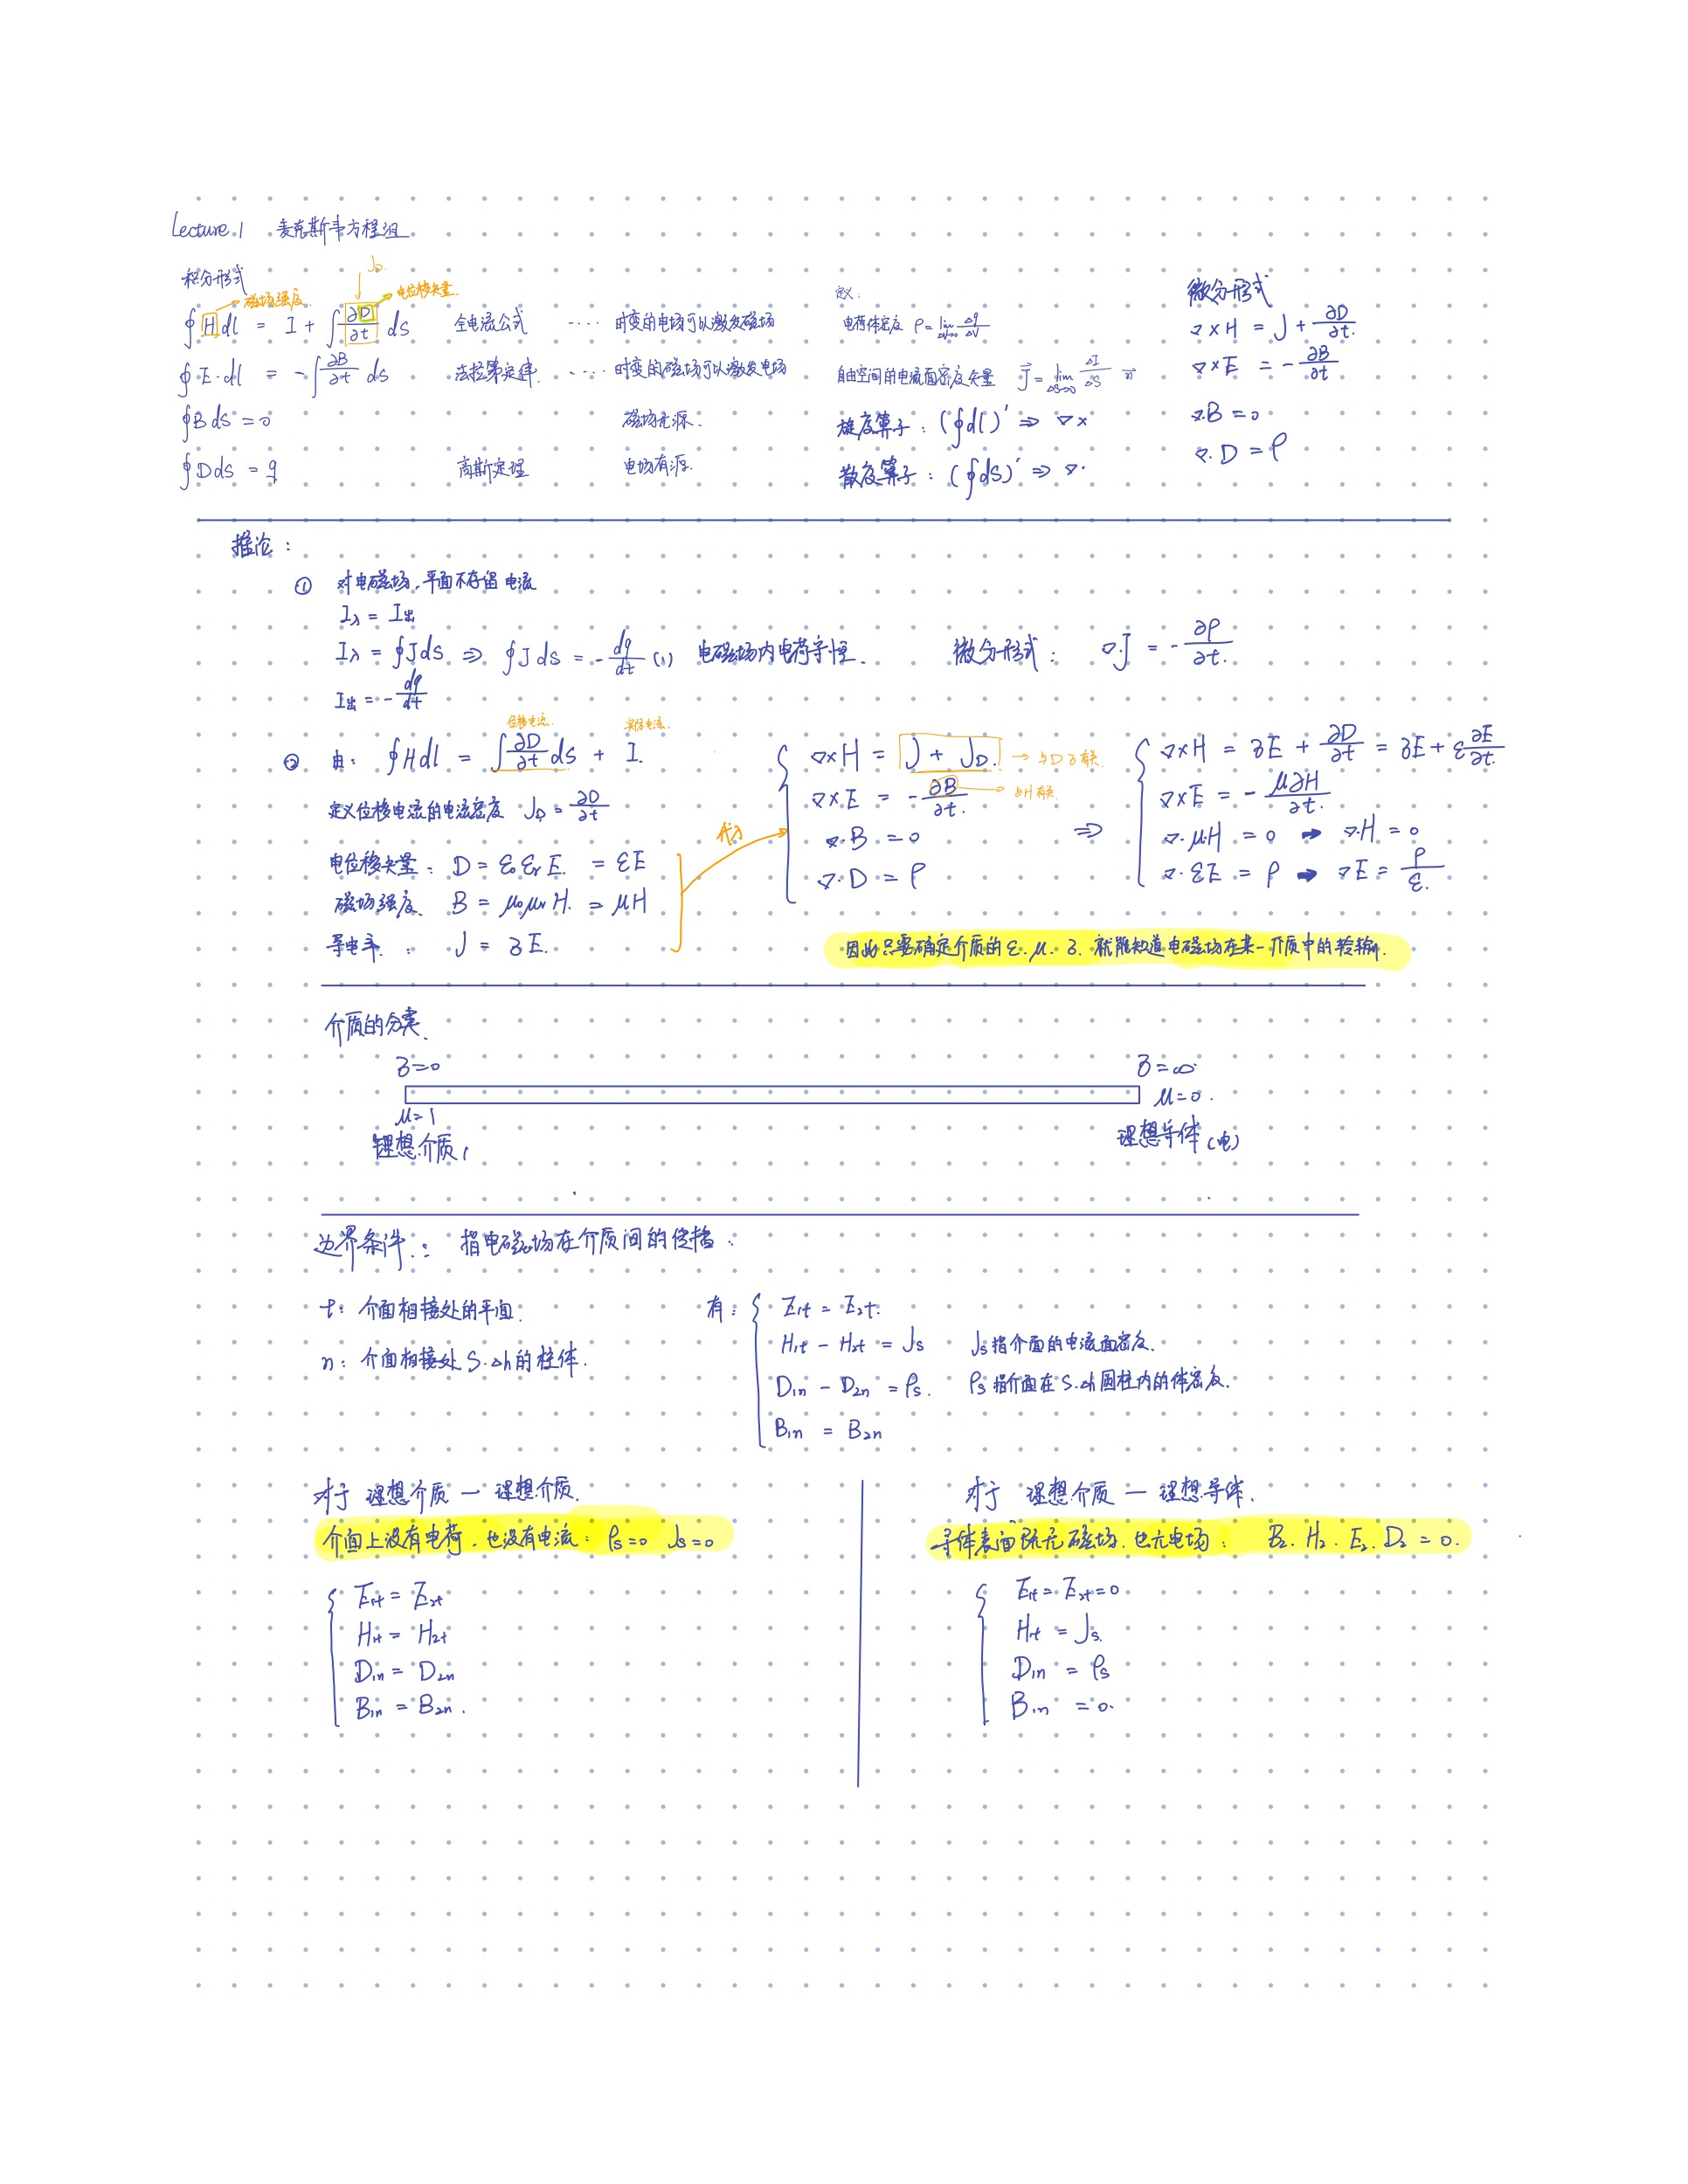 Lecture 1 麦克斯韦方程组
积分形式
J_D
磁场强度
电位移矢量
∮Hdl = I + ∫∂D/∂t ds 全电流公式 ···· 时变的电场可以激发磁场
∮E·dl = -∫∂B/∂t ds 法拉第定律 ···· 时变的磁场可以激发电场
∮Bds = 0 磁场无源.
∮Dds = q 高斯定理 电场有源.
定义:
电荷体密度 ρ = lim Δv→0 Δq/Δv
自由空间的电流面密度矢量 J⃗ = lim Δs→0 ΔI/ΔS n⃗
旋度算子: (∮dl)' ⇒ ∇×
散度算子: (∮ds)' ⇒ ∇·
微分形式
∇×H = J + ∂D/∂t.
∇×E = -∂B/∂t
∇·B = 0
∇·D = ρ
推论:
① 对电磁场,平面不存留电流
I入 = I出
I入 = ∮Jds ⇒ ∮Jds = -dq/dt (1) 电磁场内电荷守恒. 微分形式: ∇·J = -∂ρ/∂t.
I出 = -dq/dt
位移电流 实际电流.
② 由: ∮Hdl = ∫∂D/∂t ds + I.
定义位移电流的电流密度 J_D = ∂D/∂t
电位移矢量: D = ε₀εᵣE. = εE
磁场强度. B = μ₀μᵣH. = μH
导电率: J = бE.
代入
∇×H = J + J_D. → 与D б有关.
∇×E = -∂B/∂t. → 与H有关.
∇·B = 0
∇·D = ρ
⇒
∇×H = бE + ∂D/∂t = бE + ε∂E/∂t.
∇×E = -μ∂H/∂t.
∇·μH = 0 → ∇·H = 0
∇·εE = ρ → ∇E = ρ/ε.
因此只要确定介质的ε. μ. б. 就能知道电磁场在某一介质中的传输.
介质的分类.
б=0 б=∞
μ=1 μ=0.
理想介质 理想导体(电)
边界条件: 指电磁场在介质间的传播.
t: 介面相接处的平面.
n: 介面相接处 S.Δh的柱体.
有: E₁t = E₂t.
H₁t - H₂t = Js Js指介面的电流面密度.
D₁n - D₂n = ρs. ρs指介面在S.Δh圆柱内的体密度.
B₁n = B₂n
对于 理想介质 — 理想介质.
介面上没有电荷.也没有电流: ρs=0 Js=0
E₁t = E₂t
H₁t = H₂t
D₁n = D₂n
B₁n = B₂n.
对于 理想介质 — 理想导体.
导体表面既无磁场.也无电场: B₂. H₂. E₂. D₂ = 0.
E₁t = E₂t = 0
H₁t = Js.
D₁n = ρs
B₁n = 0.